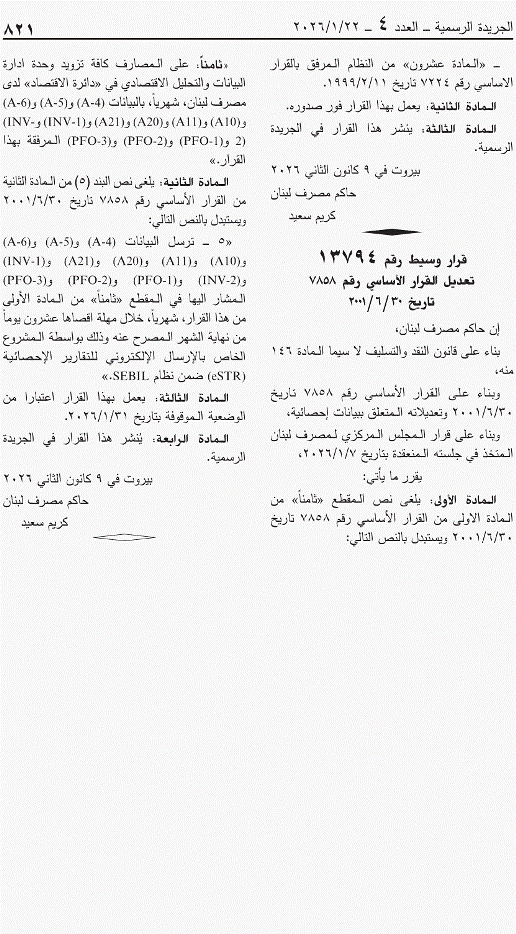 الجريدة الرسمية ــ العدد ٤ ــ ٢٠٢٦/١/٢٢
٨٢١
ــ «المادة عشرون» من النظام المرفق بالقرار
الاساسي رقم ٧٢٢٤ تاريخ ١٩٩٩/٢/١١.
المادة الثانية: يعمل بهذا القرار فور صدوره.
المادة الثالثة: ينشر هذا القرار في الجريدة
الرسمية.
بيروت في ٩ كانون الثاني ٢٠٢٦
حاكم مصرف لبنان
كريم سعيد
قرار وسيط رقم ١٣٧٩٤
تعديل القرار الأساسي رقم ٧٨٥٨
تاريخ ٢٠٠١/٦/٣٠
إن حاكم مصرف لبنان،
بناء على قانون النقد والتسليف لا سيما المادة ١٤٦
منه،
وبناء على القرار الأساسي رقم ٧٨٥٨ تاريخ
٢٠٠١/٦/٣٠ وتعديلاته المتعلق ببيانات إحصائية،
وبناء على قرار المجلس المركزي لمصرف لبنان
المتخذ في جلسته المنعقدة بتاريخ ٢٠٢٦/١/٧،
يقرر ما يأتي:
المادة الأولى: يلغى نص المقطع «ثامناً» من
المادة الاولى من القرار الأساسي رقم ٧٨٥٨ تاريخ
٢٠٠١/٦/٣٠ ويستبدل بالنص التالي:
«ثامناً: على المصارف كافة تزويد وحدة ادارة
البيانات والتحليل الاقتصادي في «دائرة الاقتصاد» لدى
مصرف لبنان، شهرياً، بالبيانات (A-4) و(A-5) و(A-6)
و(A10) و(A11) و(A20) و(A21) و(INV-1) و(INV-
2) و(PFO-1) و(PFO-2) و(PFO-3) المرفقة بهذا
القرار.»
المادة الثانية: يلغى نص البند (٥) من المادة الثانية
من القرار الأساسي رقم ٧٨٥٨ تاريخ ٢٠٠١/٦/٣٠
ويستبدل بالنص التالي:
«٥ ــ ترسل البيانات (A-4) و(A-5) و(A-6)
و(A10) و(A11) و(A20) و(A21) و(INV-1)
و(INV-2) و(PFO-1) و(PFO-2) و(PFO-3)
المشار اليها في المقطع «ثامناً» من المادة الأولى
من هذا القرار، شهرياً، خلال مهلة اقصاها عشرون يوماً
من نهاية الشهر المصرح عنه وذلك بواسطة المشروع
الخاص بالإرسال الإلكتروني للتقارير الإحصائية
(eSTR) ضمن نظام SEBIL.»
المادة الثالثة: يعمل بهذا القرار اعتبارا من
الوضعية الموقوفة بتاريخ ٢٠٢٦/١/٣١.
المادة الرابعة: يُنشر هذا القرار في الجريدة
الرسمية.
بيروت في ٩ كانون الثاني ٢٠٢٦
حاكم مصرف لبنان
كريم سعيد